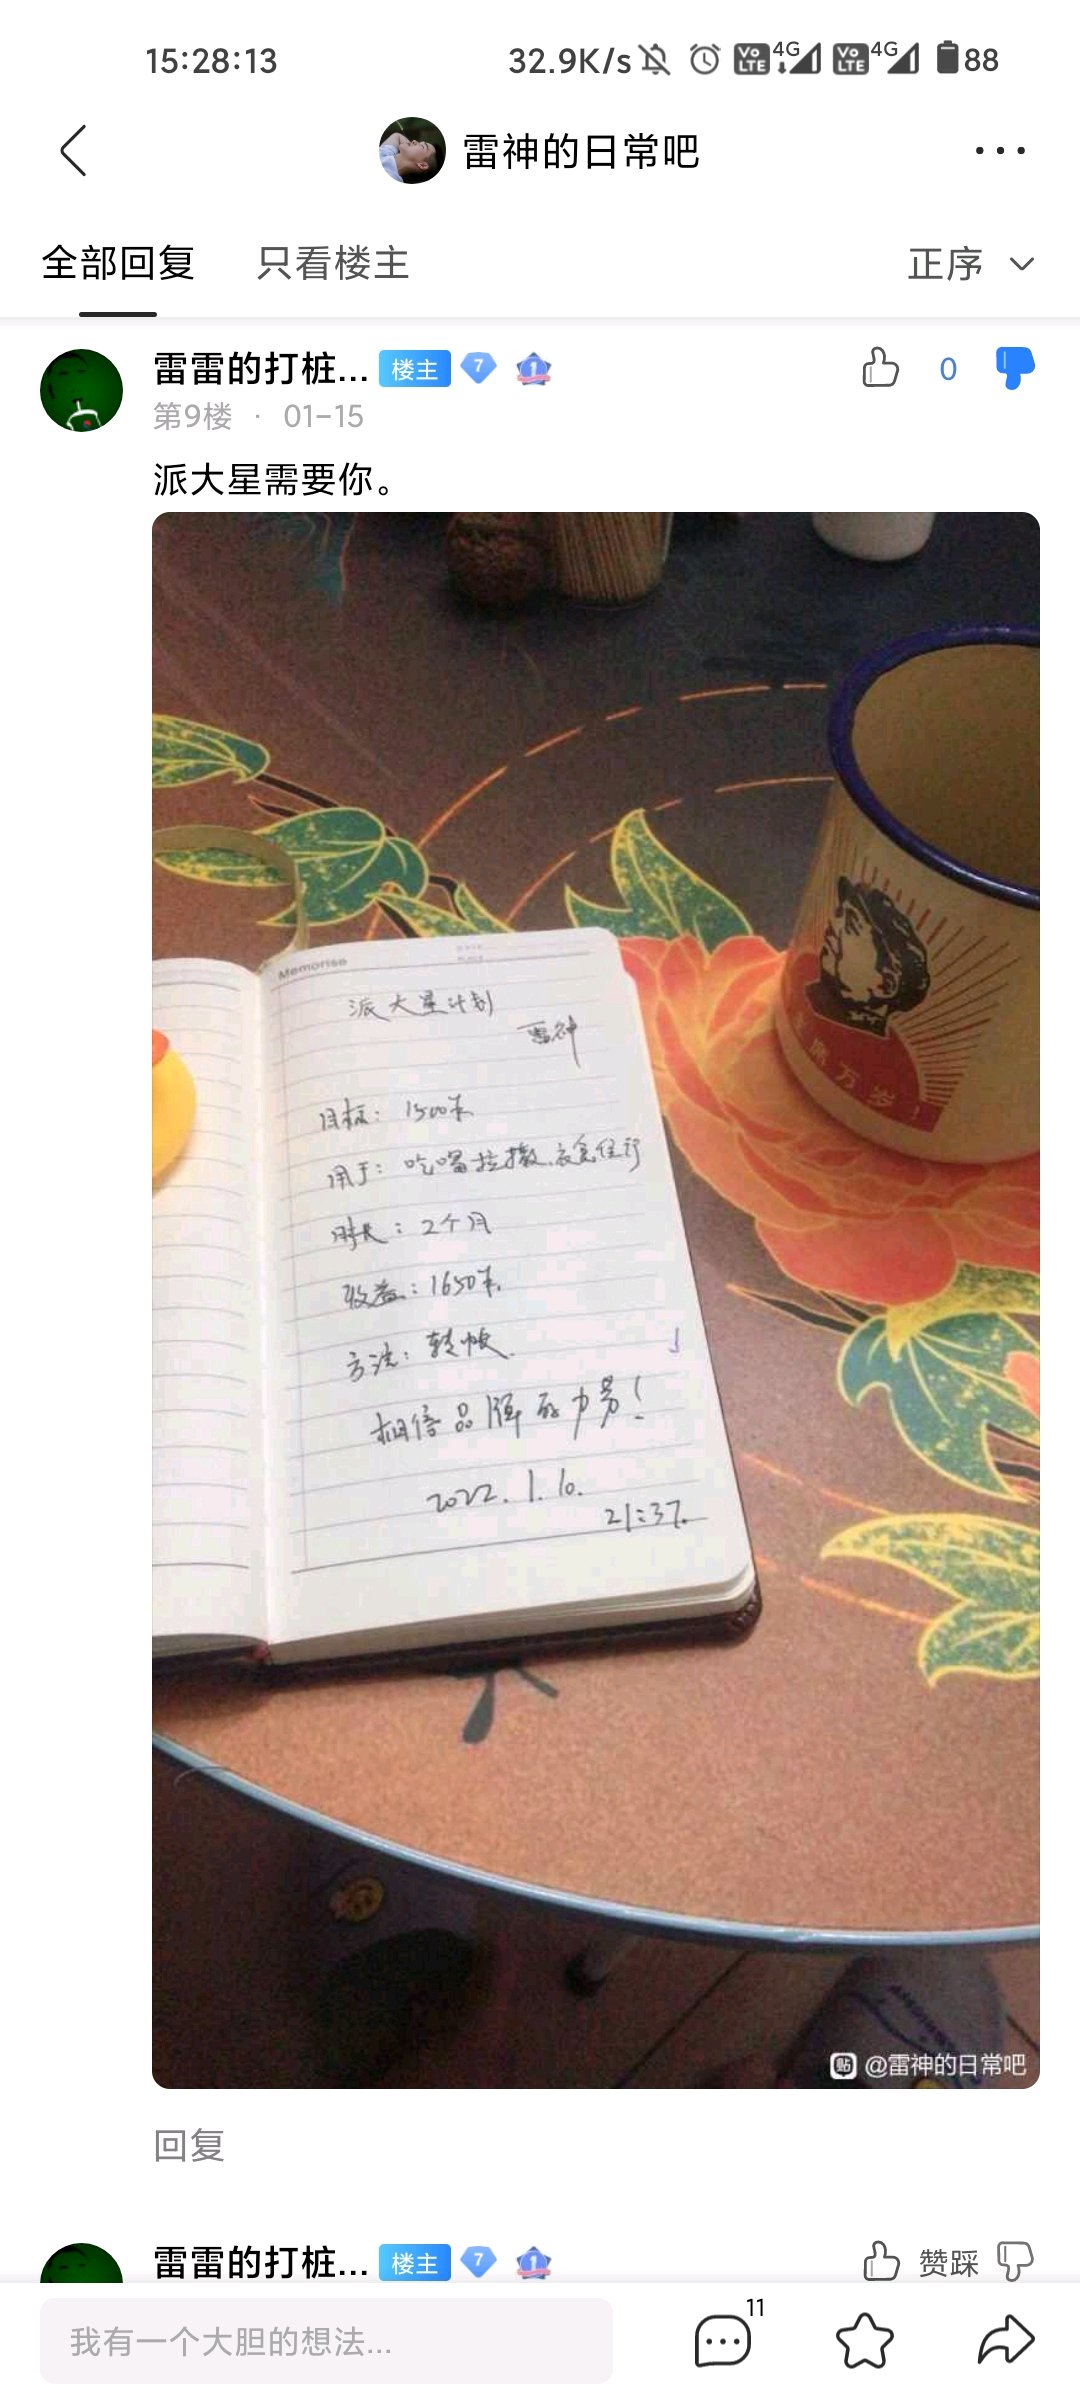 15:28:13
32.9K/s
4G
4G
88
雷神的日常吧
全部回复
只看楼主
正序
雷雷的打桩...
楼主
7
1
0
第9楼 · 01-15
派大星需要你。
Memorise
派大星计划
雷神
目标：1500米
用于：吃喝拉撒、衣食住行
时长：2个月
收益：1650米.
方法：转帐.
相信品牌的力量！
2022.1.10.
21:37.
万岁！
@雷神的日常吧
回复
雷雷的打桩...
楼主
7
1
赞踩
我有一个大胆的想法...
11